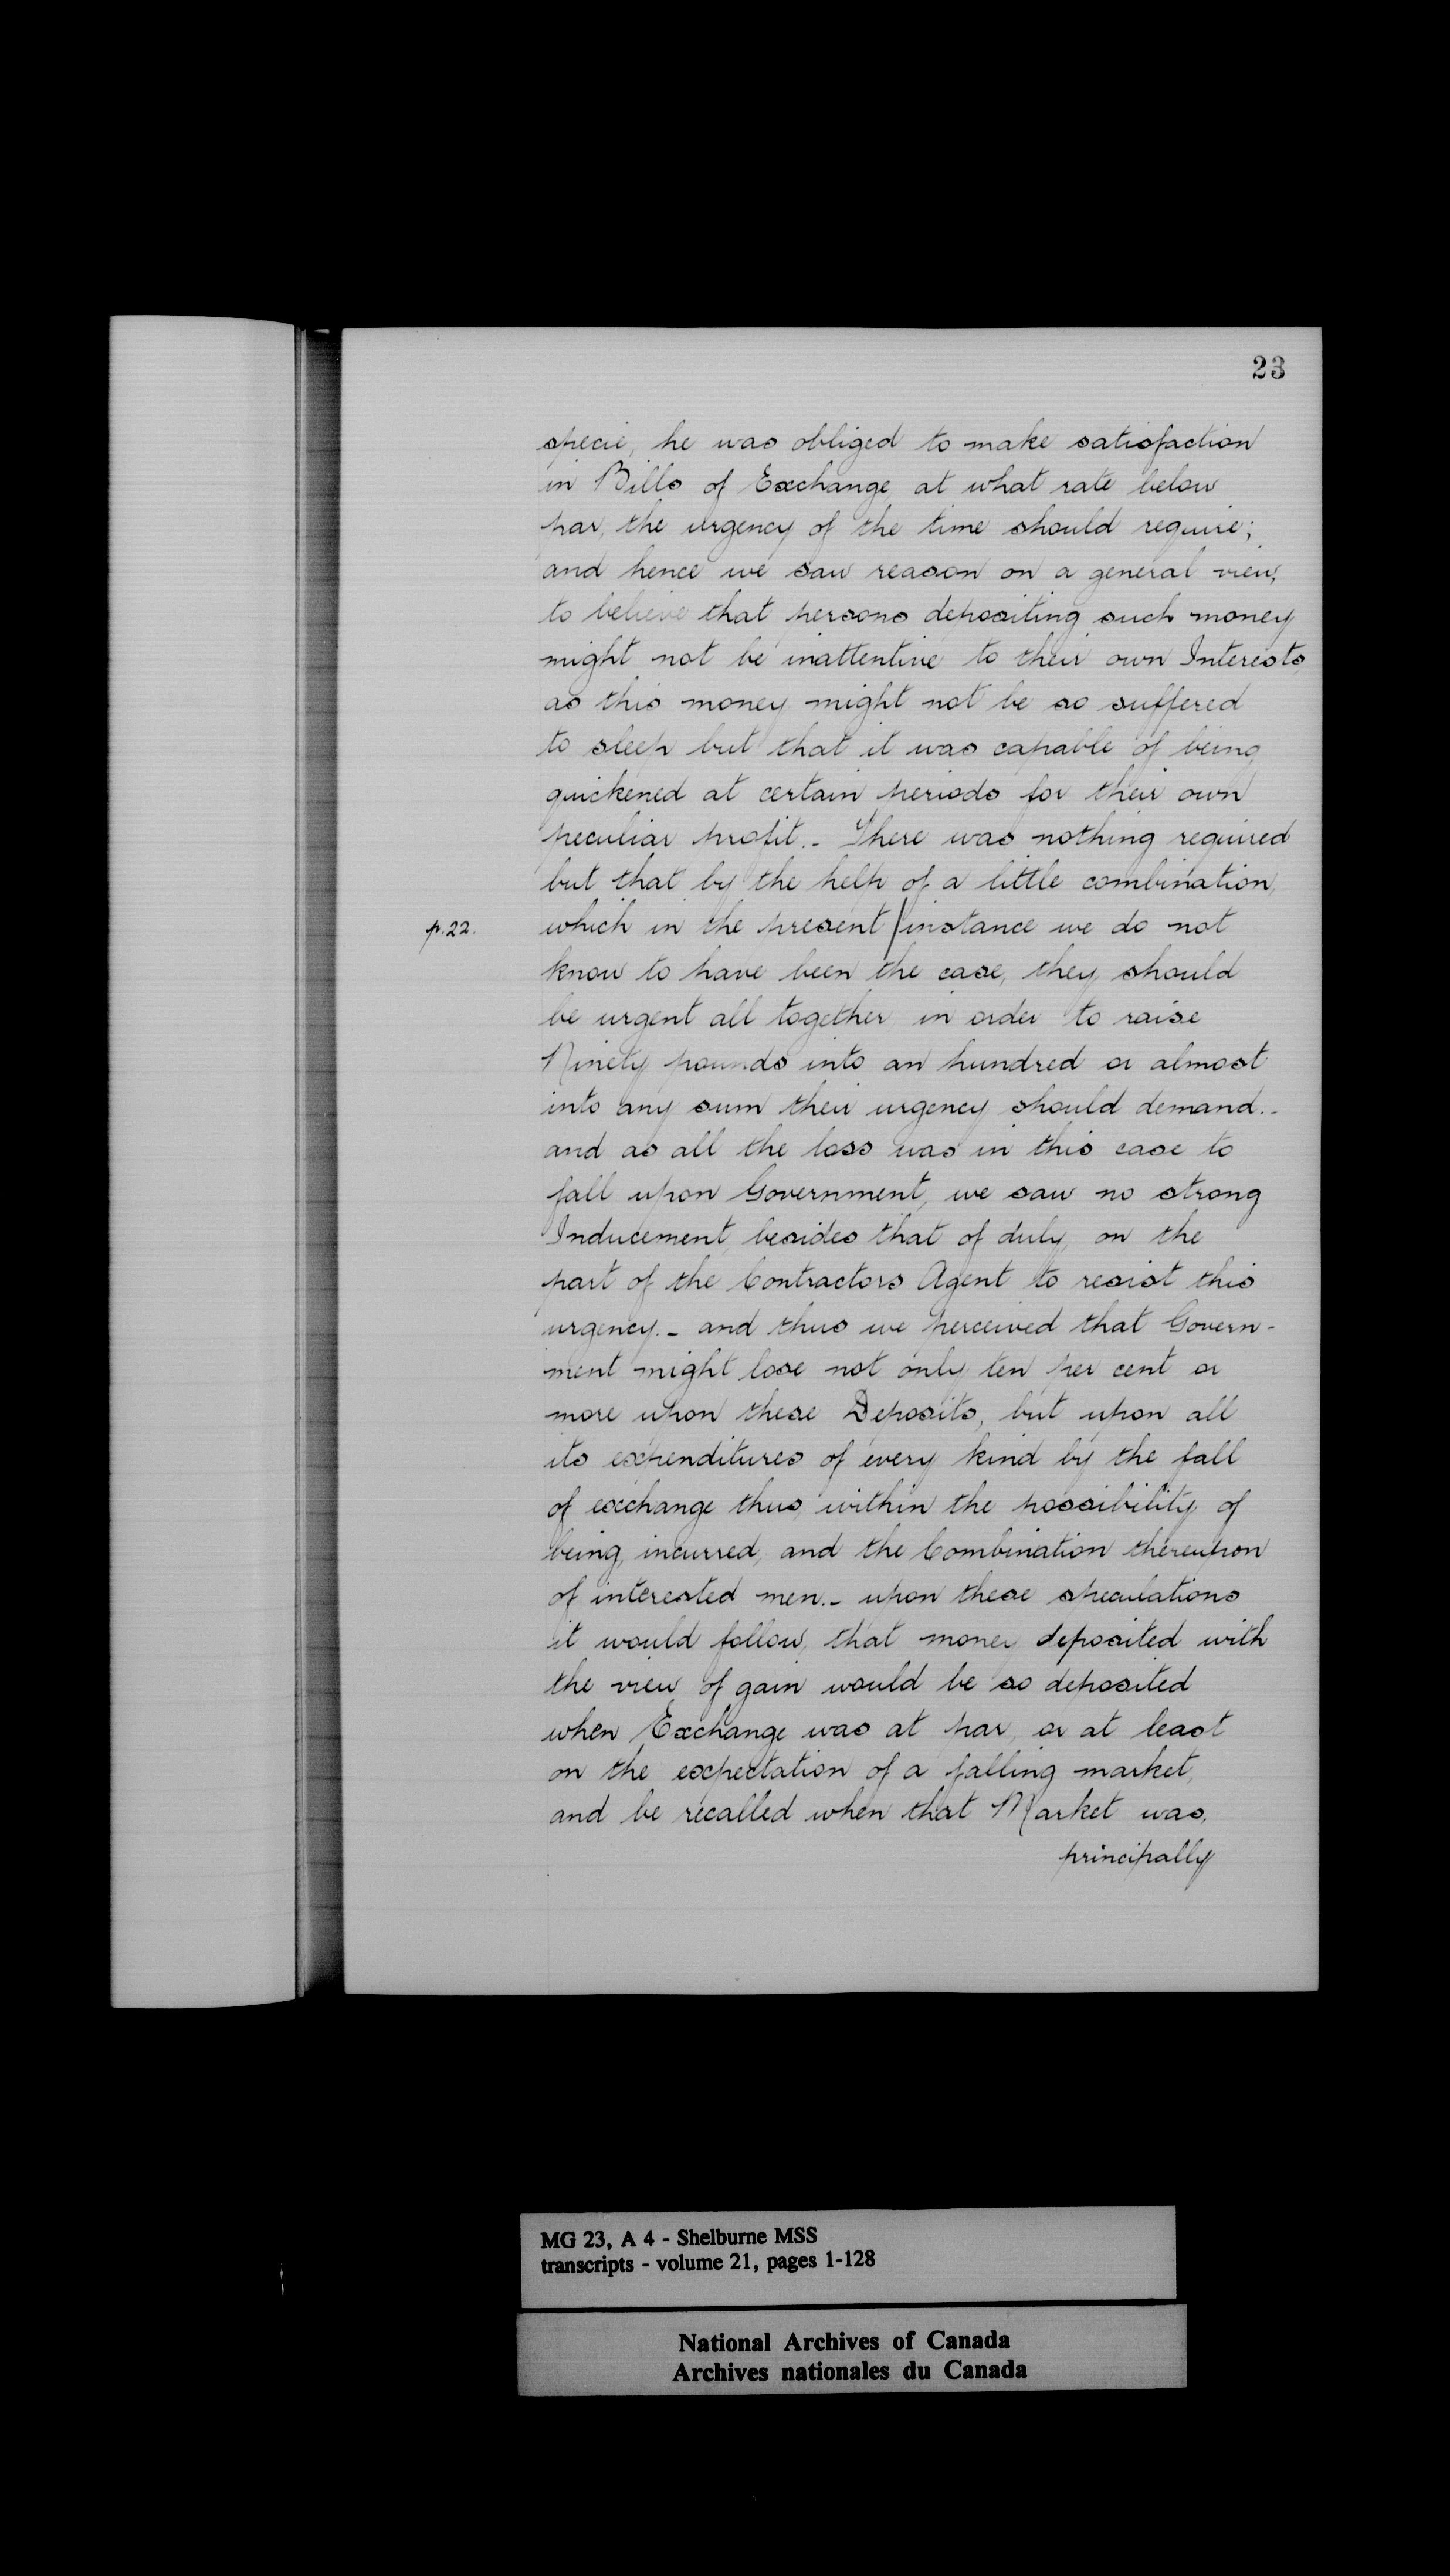 23
specie, he was obliged to make satisfaction
in Bills of Exchange, at what rate below
par, the urgency of the time should require;
and hence we saw reason on a general view,
to believe that persons depositing such money
might not be inattentive to their own Interests,
as this money might not be so suffered
to sleep but that it was capable of being
quickened at certain periods for their own
peculiar profit.- There was nothing required
but that by the help of a little combination,
p.22. which in the present / instance we do not
know to have been the case, they should
be urgent all together in order to raise
Ninety pounds into an hundred or almost
into any sum their urgency should demand.-
and as all the loss was in this case to
fall upon Government, we saw no strong
Inducement, besides that of duly, on the
part of the Contractors Agent to resist this
urgency.- and thus we perceived that Govern-
ment might lose not only ten per cent or
more upon these Deposits, but upon all
its expenditures of every kind by the fall
of exchange thus, within the possibility of
being, incurred, and the Combination thereupon
of interested men.- upon these speculations
it would follow, that money deposited with
the view of gain would be so deposited
when Exchange was at par, or at least
on the expectation of a falling market,
and be recalled when that Market was,
principally
MG 23, A 4 - Shelburne MSS
transcripts - volume 21, pages 1-128
National Archives of Canada
Archives nationales du Canada